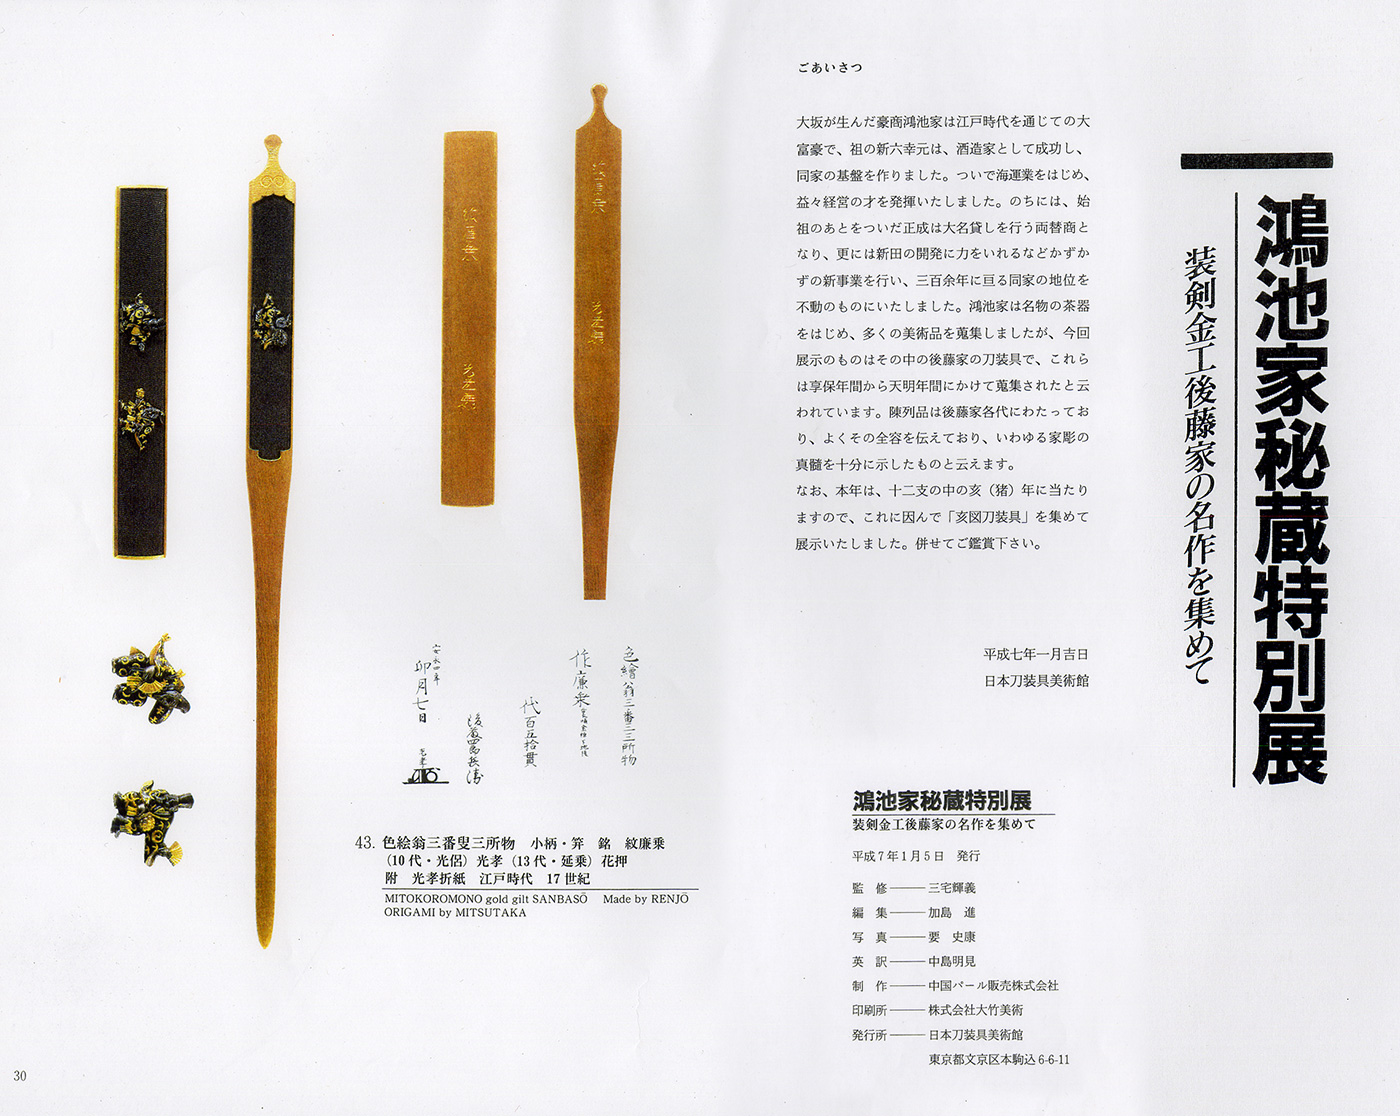 鴻池家秘蔵特別展
装剣金工後藤家の名作を集めて
ごあいさつ
大坂が生んだ豪商鴻池家は江戸時代を通じての大
富豪で、祖の新六幸元は、酒造家として成功し、
同家の基盤を作りました。ついで海運業をはじめ、
益々経営の才を発揮いたしました。のちには、始
祖のあとをついだ正成は大名貸しを行う両替商と
なり、更には新田の開発に力をいれるなどかずか
ずの新事業を行い、三百余年に亘る同家の地位を
不動のものにいたしました。鴻池家は名物の茶器
をはじめ、多くの美術品を蒐集しましたが、今回
展示のものはその中の後藤家の刀装具で、これら
は享保年間から天明年間にかけて蒐集されたと云
われています。陳列品は後藤家各代にわたってお
り、よくその全容を伝えており、いわゆる家彫の
真髄を十分に示したものと云えます。
なお、本年は、十二支の中の亥（猪）年に当たり
ますので、これに因んで「亥図刀装具」を集めて
展示いたしました。併せてご鑑賞下さい。
平成七年一月吉日
日本刀装具美術館
鴻池家秘蔵特別展
装剣金工後藤家の名作を集めて
平成7年1月5日　発行
監　修――三宅輝義
編　集――加島　進
写　真――要　史康
英　訳――中島明見
制　作――中国パール販売株式会社
印刷所――株式会社大竹美術
発行所――日本刀装具美術館
東京都文京区本駒込6-6-11
紋廉乗
光孝
紋廉乗
光孝
色繪翁三番三三所物
作廉乗
代百五拾貫
安永四年
卯月七日
後藤四郎兵衛
光孝
43. 色絵翁三番叟三所物　小柄・笄　銘　紋廉乗
（10代・光侶）光孝（13代・延乗）花押
附　光孝折紙　江戸時代　17世紀
MITOKOROMONO gold gilt SANBASŌ　Made by RENJŌ
ORIGAMI by MITSUTAKA
30